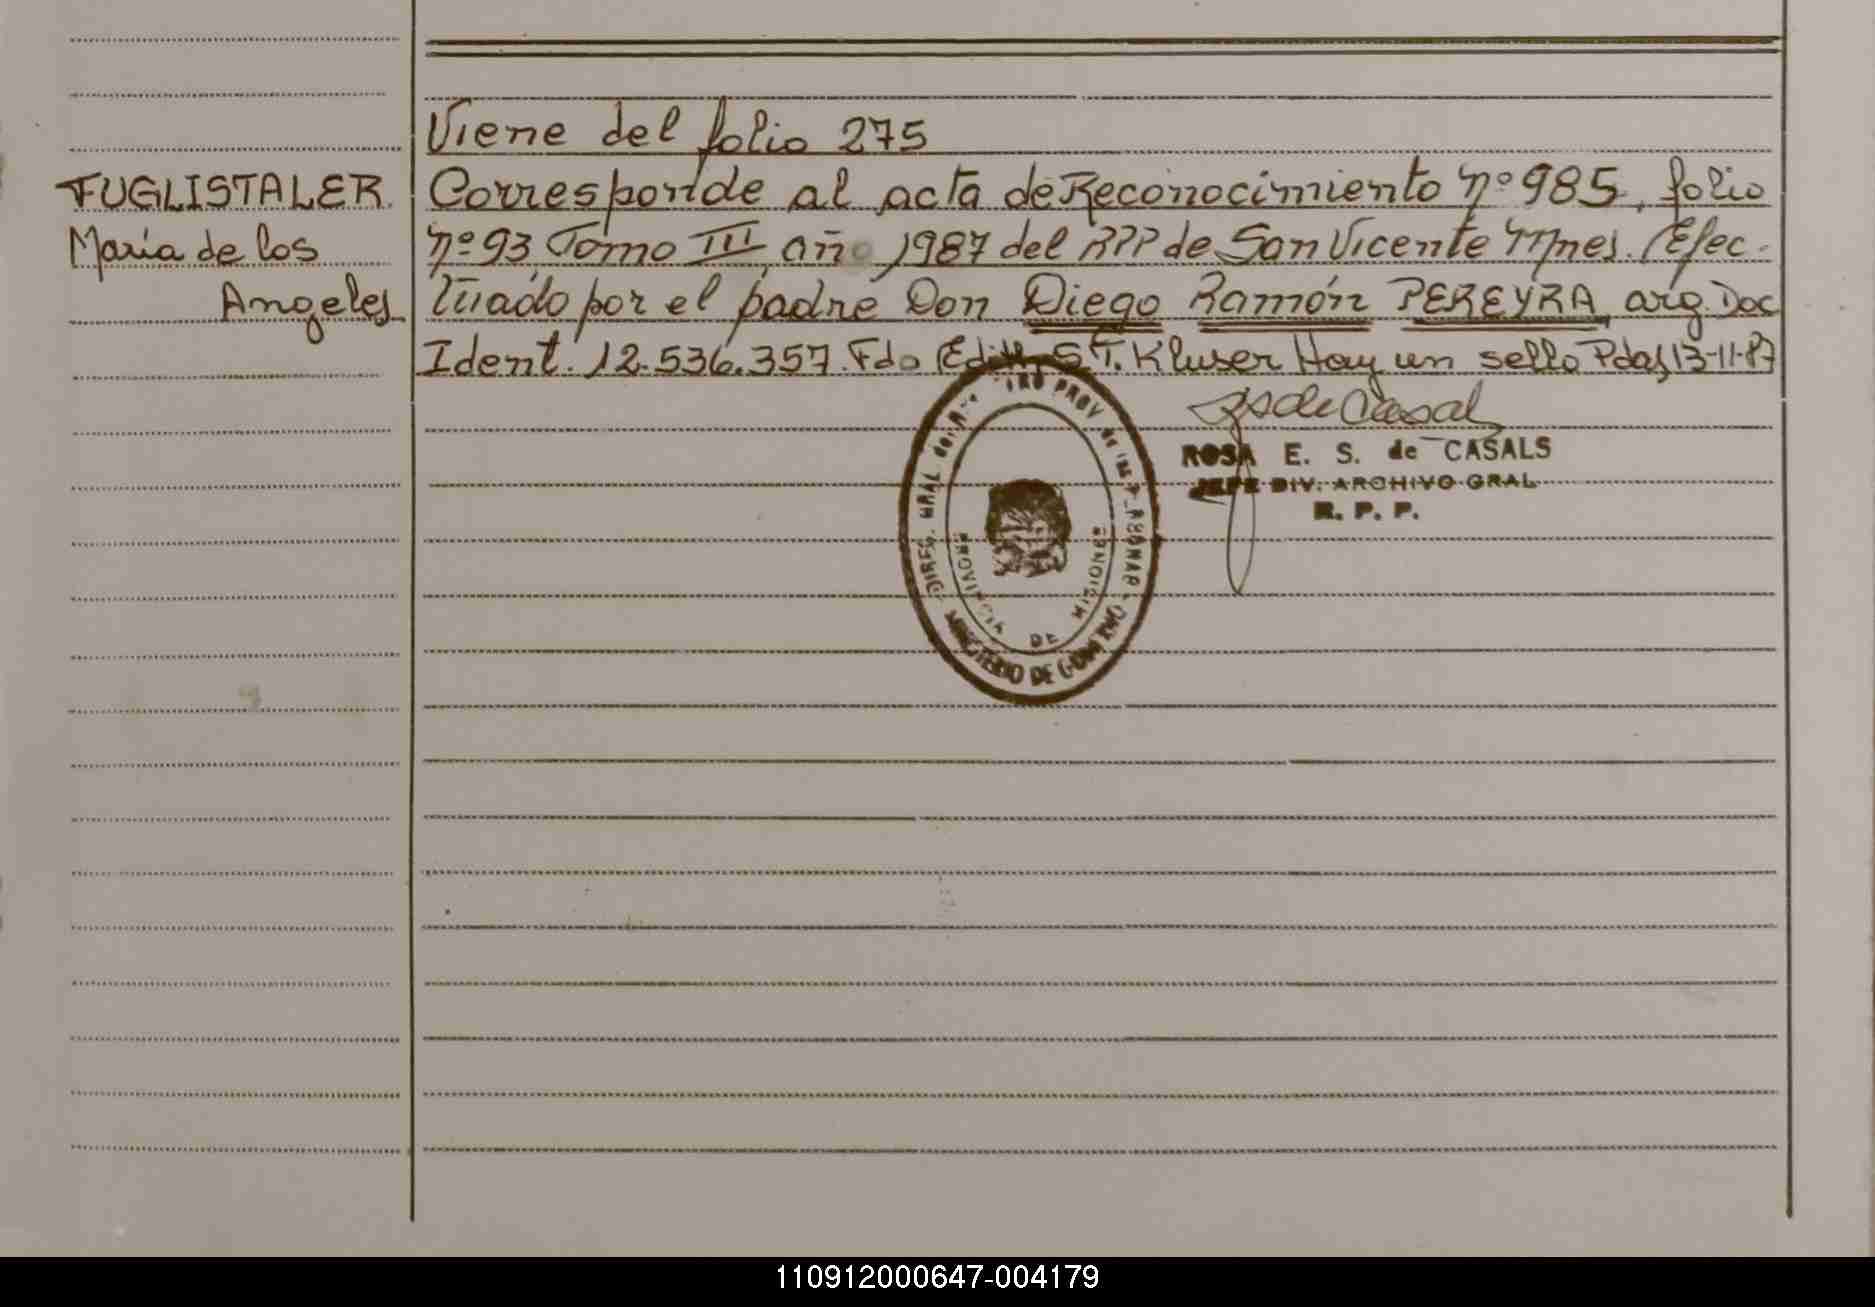 Viene del folio 275
FUGLISTALER
María de los
Angeles
Corresponde al acta de Reconocimiento nº 985, folio
nº 93 Tomo III, año 1987 del RPP de San Vicente Mnes. Efec-
tuado por el padre Don Diego Ramón PEREYRA, arg. Doc
Ident. 12.536.357. Fdo Edith S. T. Kluser Hay un sello Pdas, 13-11-87
ROSA E. S. de CASALS
JEFE DIV. ARCHIVO GRAL
R. P. P.
PROVINCIA DE MISIONES
MINISTERIO DE GOBIERNO
110912000647-004179